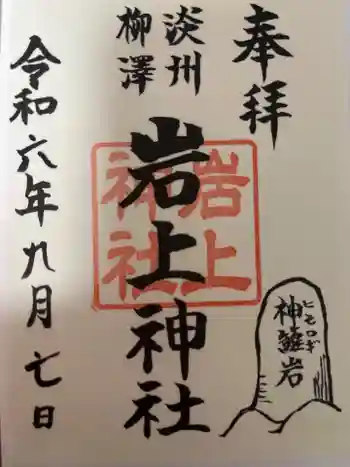 奉拝
淡州
柳澤
岩上神社
岩上
神社
令和六年九月七日
神籬岩
ヒモロギ